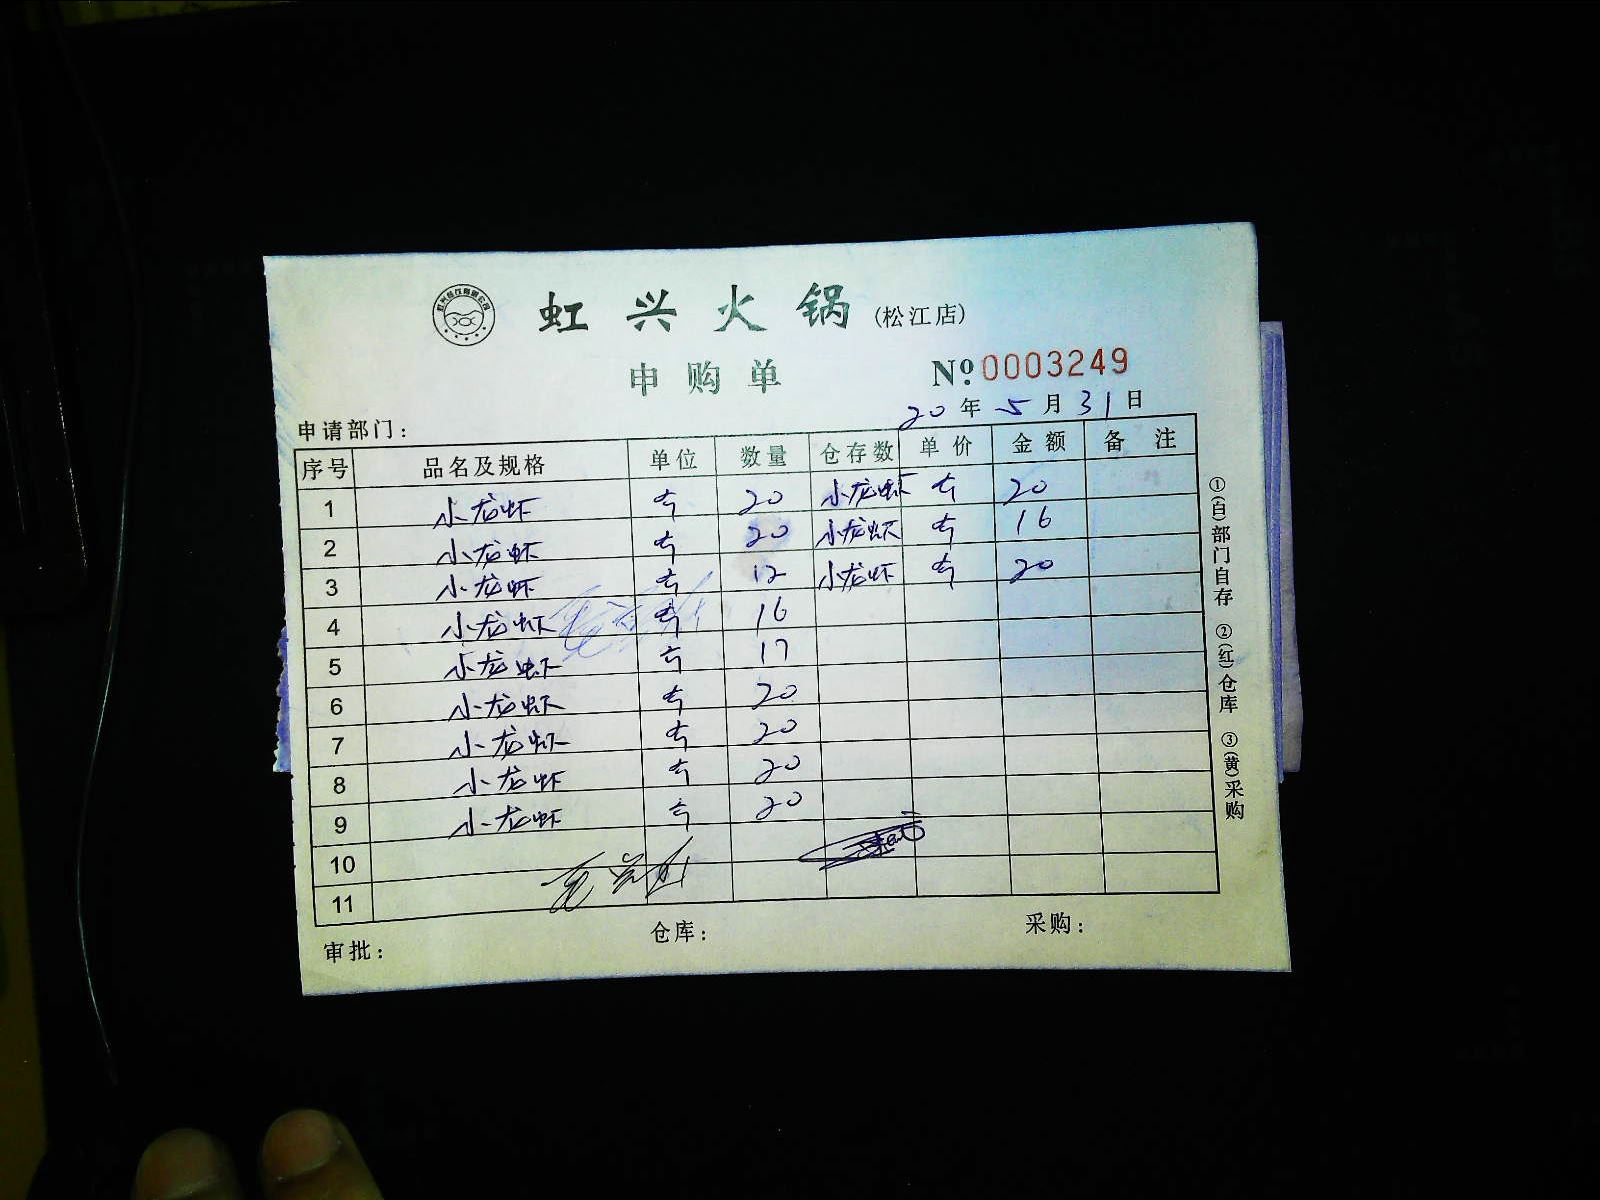 虹兴火锅(松江店)
申购单 Nº.0003249
20年5月31日
申请部门:
序号 品名及规格 单位 数量 仓存数 单价 金额 备注
1 小龙虾 斤 20 小龙虾 斤 20
2 小龙虾 斤 20 小龙虾 斤 16
3 小龙虾 斤 12 小龙虾 斤 20
4 小龙虾 斤 16
5 小龙虾 斤 17
6 小龙虾 斤 20
7 小龙虾 斤 20
8 小龙虾 斤 20
9 小龙虾 斤 20
10
11
审批: 仓库: 采购:
①(白)部门自存 ②(红)仓库 ③(黄)采购